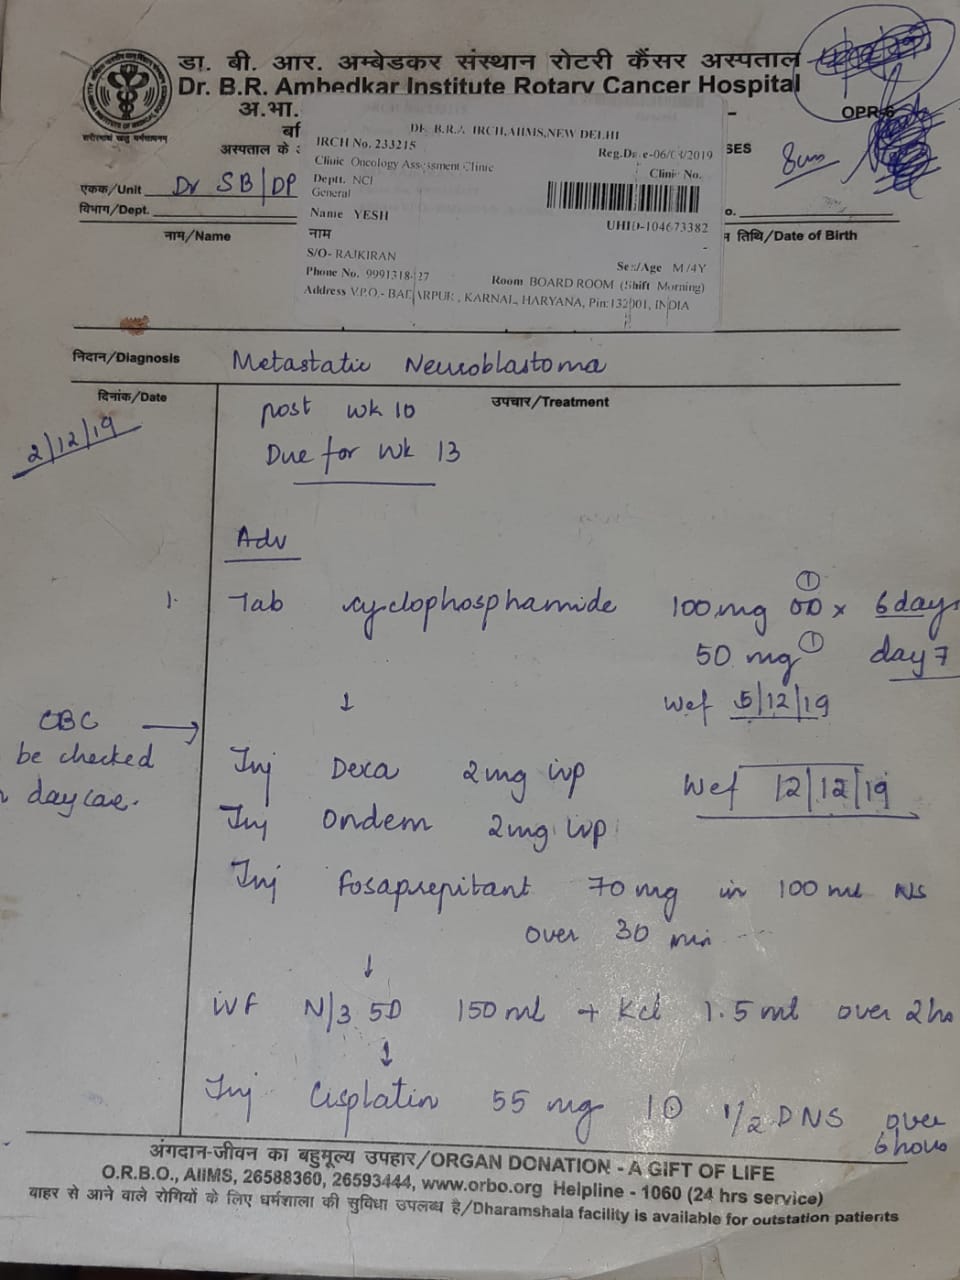 डा. बी. आर. अम्बेडकर संस्थान रोटरी कैंसर अस्पताल
Dr. B.R. Ambedkar Institute Rotary Cancer Hospital
अ.भा.
OPR-6
अस्पताल के
SES
8um
DR. B.R.A. IRCH,AIIMS,NEW DELHI
IRCH No. 233215
Reg.Da e-06/ /2019
Clinic Oncology Assessment Clinic
Clinic No.
Deptt. NCI
General
Name YESH
UHID-104673382
नाम
S/O- RAJKIRAN
Sex/Age M/4Y
Phone No. 9991318 27
Room BOARD ROOM (Shift Morning)
Address V.P.O.- BADARPUR , KARNAL, HARYANA, Pin:132001, INDIA
एकक/Unit Dr SB/DP
विभाग/Dept.
o.
नाम/Name
तिथि/Date of Birth
निदान/Diagnosis Metastatic Neuroblastoma
दिनांक/Date
उपचार/Treatment
2/12/19
post wk 10
Due for wk 13
Adv
1. Tab cyclophosphamide 100 mg OD x 6 days
50 mg day 7
↓
wef 5/12/19
CBC →
be checked
daycare.
Inj Dexa 2mg ivp
wef 12/12/19
Inj Ondem 2mg ivp
Inj fosaprepitant 70 mg in 100 ml NS
over 30 min
↓
IVF N/3 5D 150 ml + Kcl 1.5 ml over 2 ho
↓
Inj Cisplatin 55 mg 1/2 DNS over
6 hours
अंगदान-जीवन का बहुमूल्य उपहार/ORGAN DONATION - A GIFT OF LIFE
O.R.B.O., AIIMS, 26588360, 26593444, www.orbo.org Helpline - 1060 (24 hrs service)
बाहर से आने वाले रोगियों के लिए धर्मशाला की सुविधा उपलब्ध है/Dharamshala facility is available for outstation patients